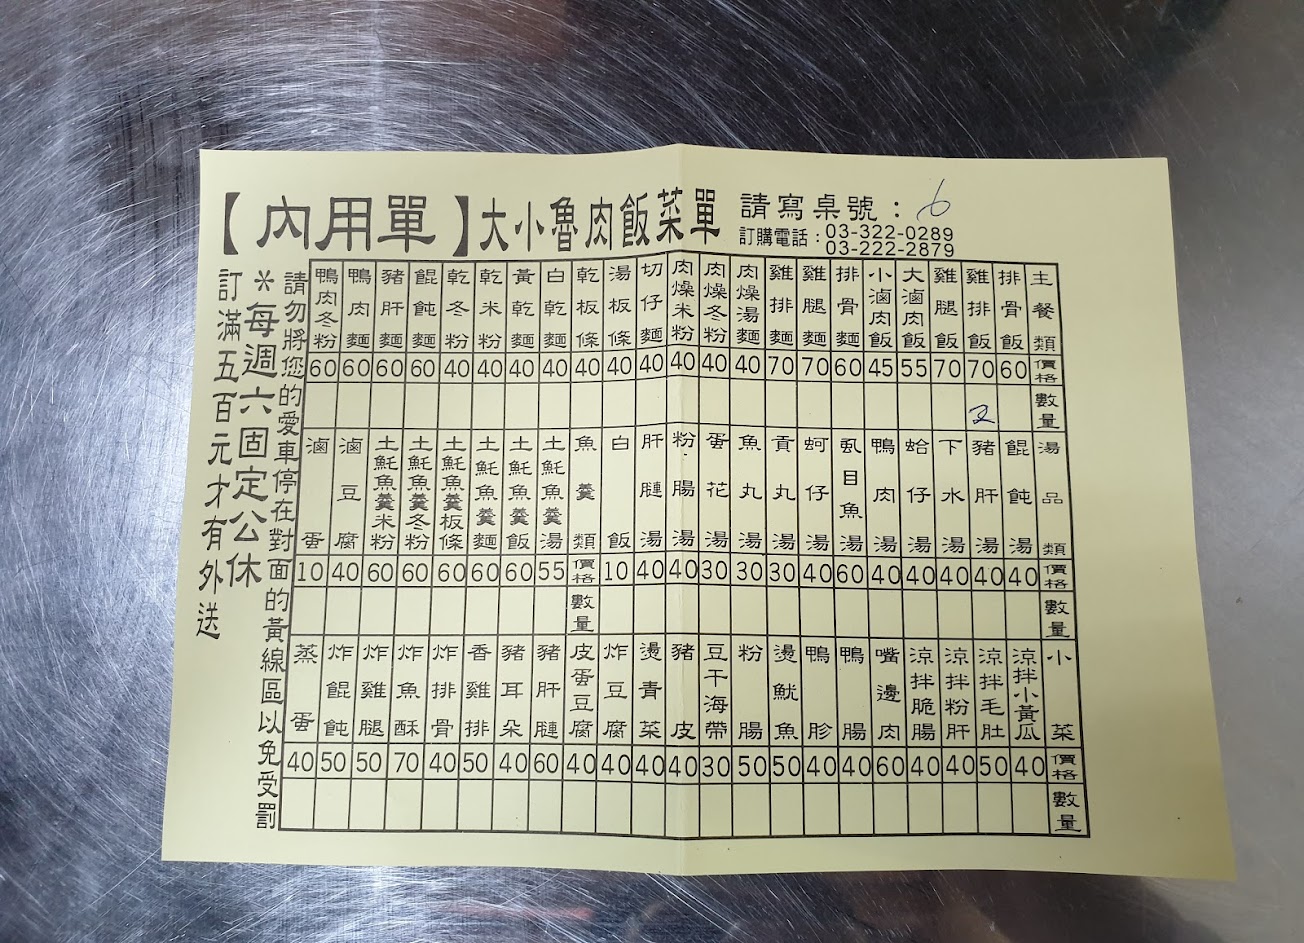 【內用單】大小魯肉飯菜單
請寫桌號：6
訂購電話：03-322-0289
03-222-2879
主餐類 價格 數量
排骨飯 60
雞排飯 70 2
雞腿飯 70
大滷肉飯 55
小滷肉飯 45
排骨麵 60
雞腿麵 70
雞排麵 70
肉燥湯麵 40
肉燥冬粉 40
肉燥米粉 40
切仔麵 40
湯板條 40
乾板條 40
白乾麵 40
黃乾麵 40
乾米粉 40
乾冬粉 40
餛飩麵 60
豬肝麵 60
鴨肉麵 60
鴨肉冬粉 60
湯品類 價格 數量
餛飩湯 40
豬肝湯 40
下水湯 40
蛤仔湯 40
鴨肉湯 40
虱目魚湯 60
蚵仔湯 40
貢丸湯 30
魚丸湯 30
蛋花湯 30
粉腸湯 40
肝膁湯 40
白飯 10
魚羹類 價格 數量
土魠魚羹湯 55
土魠魚羹飯 60
土魠魚羹麵 60
土魠魚羹板條 60
土魠魚羹冬粉 60
土魠魚羹米粉 60
滷豆腐 40
滷蛋 10
小菜 價格 數量
涼拌小黃瓜 40
涼拌毛肚 50
涼拌粉肝 40
涼拌脆腸 40
嘴邊肉 60
鴨腸 40
鴨胗 40
燙魷魚 50
粉腸 50
豆干海帶 30
豬皮 40
燙青菜 40
炸豆腐 40
皮蛋豆腐 40
豬肝膁 60
豬耳朵 40
香雞排 50
炸排骨 40
炸魚酥 70
炸雞腿 50
炸餛飩 50
蒸蛋 40
請勿將您的愛車停在對面的黃線區以免受罰
＊每週六固定公休
訂滿五百元才有外送